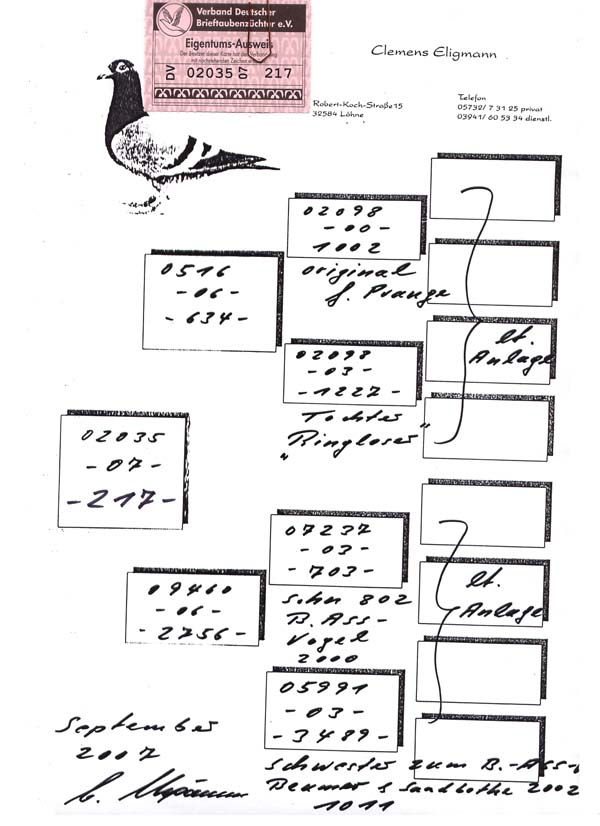 Verband Deutscher
Brieftaubenzüchter e.V.
Eigentums-Ausweis
Der Besitzer dieser Karte hat das Verbandstag
DV 02035 07 217
Clemens Eligmann
Robert-Koch-Straße 15
32584 Löhne
Telefon
05732/ 7 31 25 privat
03941/ 60 53 34 dienstl.
02098
- 00 -
1002
original
G. Prange
0516
- 06 -
- 634 -
lt.
Anlage
02098
- 03 -
- 1227 -
Tochter
"Ringloser"
02035
- 07 -
- 217 -
07237
- 03 -
- 703 -
Sohn 802
B. Ass-
Vogel
2000
09460
- 06 -
- 2756 -
lt.
Anlage
05991
- 03 -
- 3489 -
Schwester zum B.-Ass-
Beumer & Sandbothe 2002
1011
September
2007